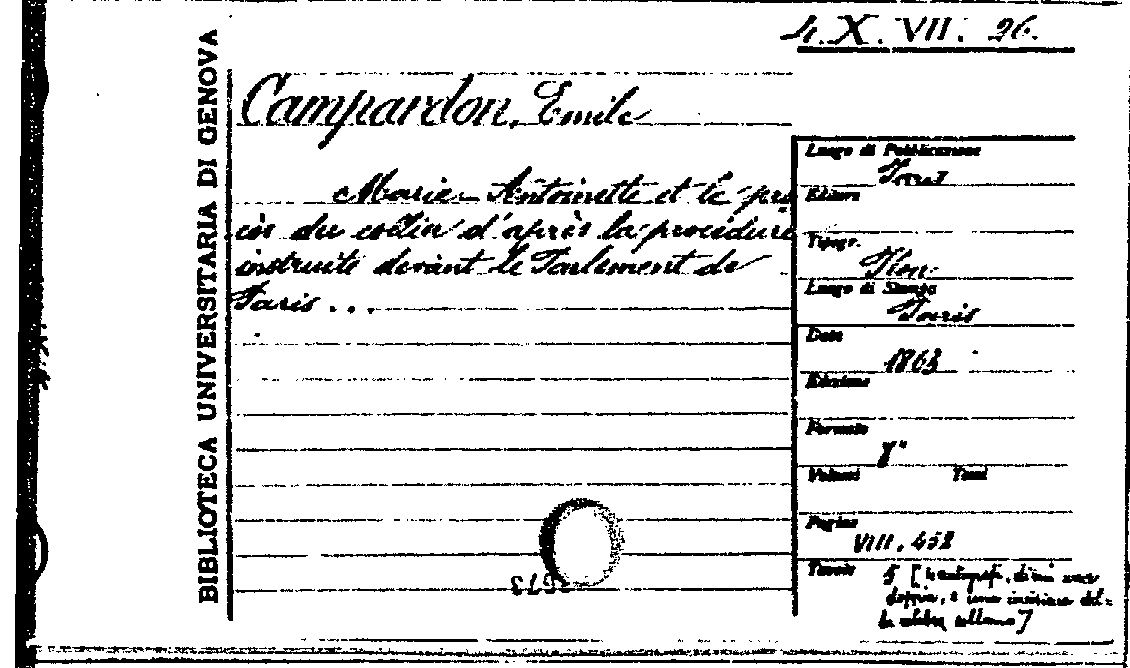 4. X. VII. 26.
BIBLIOTECA UNIVERSITARIA DI GENOVA
Campardon, Emile
Marie-Antoinette et le pro
cès du collier d'après la procédure
instruite devant le Parlement de
Paris...
Luogo di Pubblicazione
Paris
Editore
Tipogr.
Plon
Luogo di Stampa
Paris
Data
1863
Edizione
Formato
8°
Volumi Tomi
Pagine
VIII, 452
Tavole
5 [4 autografi, di cui uno
doppio, e una incisione del-
la celebre collana]